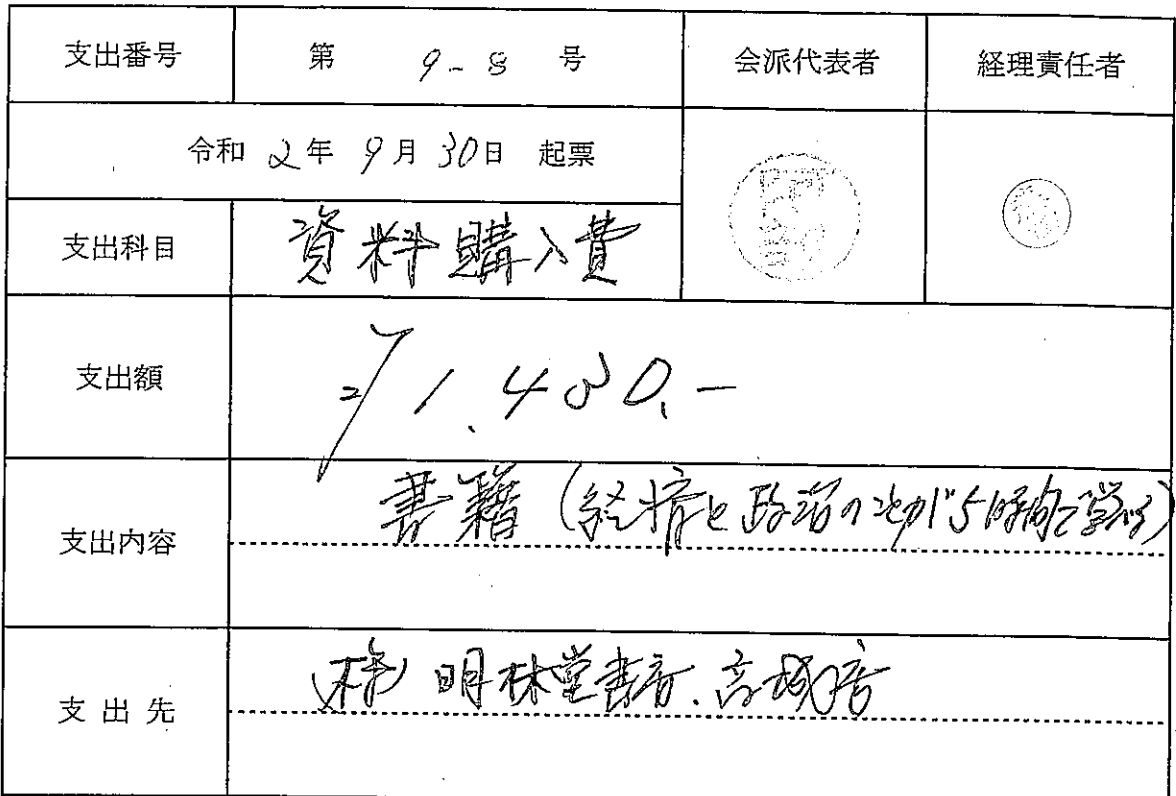 支出番号 第 9-8 号 会派代表者 経理責任者
令和 2年 9月 30日 起票
支出科目 資料購入費
支出額 ¥1,430.-
支出内容 書籍 (経済と政治のことが5時間で学べる)
支出先 (株) 明林堂書店. 高城店